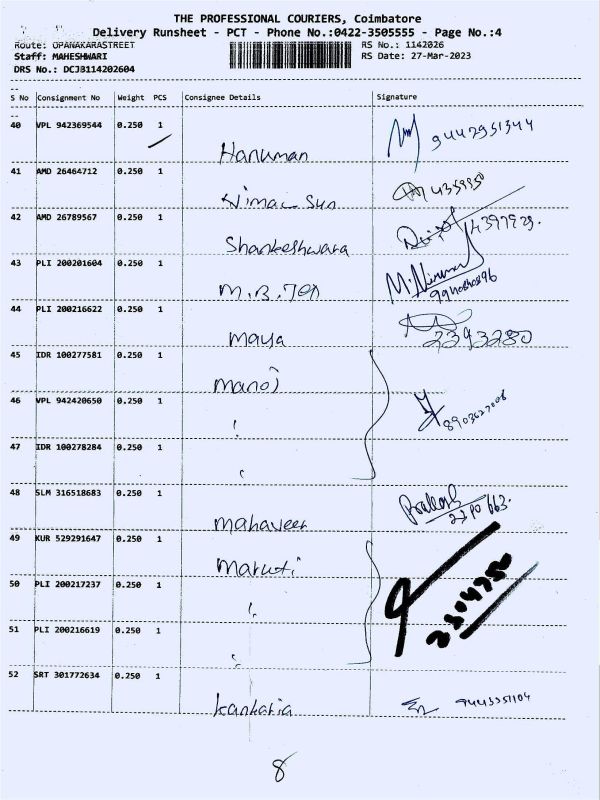 THE PROFESSIONAL COURIERS, Coimbatore
Delivery Runsheet - PCT - Phone No.:0422-3505555 - Page No.:4
Route: OPANAKARASTREET RS No.: 1142026
Staff: MAHESHWARI RS Date: 27-Mar-2023
DRS No.: DCJB114202604
--
S No Consignment No Weight PCS Consignee Details Signature
--
40 VPL 942369544 0.250 1
Hanuman 9442951344
41 AMD 26464712 0.250 1
Vimal Sun 4359950
42 AMD 26789567 0.250 1
Shankeshwara 4397929.
43 PLI 200201604 0.250 1
M.B.Tex
44 PLI 200216622 0.250 1
Maya 2393280
45 IDR 100277581 0.250 1
Manoj
46 VPL 942420650 0.250 1
8903627008
47 IDR 100278284 0.250 1
48 SLM 316518683 0.250 1
Mahaveer 2390663.
49 KUR 529291647 0.250 1
Maruti
50 PLI 200217237 0.250 1
2304750
51 PLI 200216619 0.250 1
52 SRT 301772634 0.250 1
Kankaria 9443351104
8